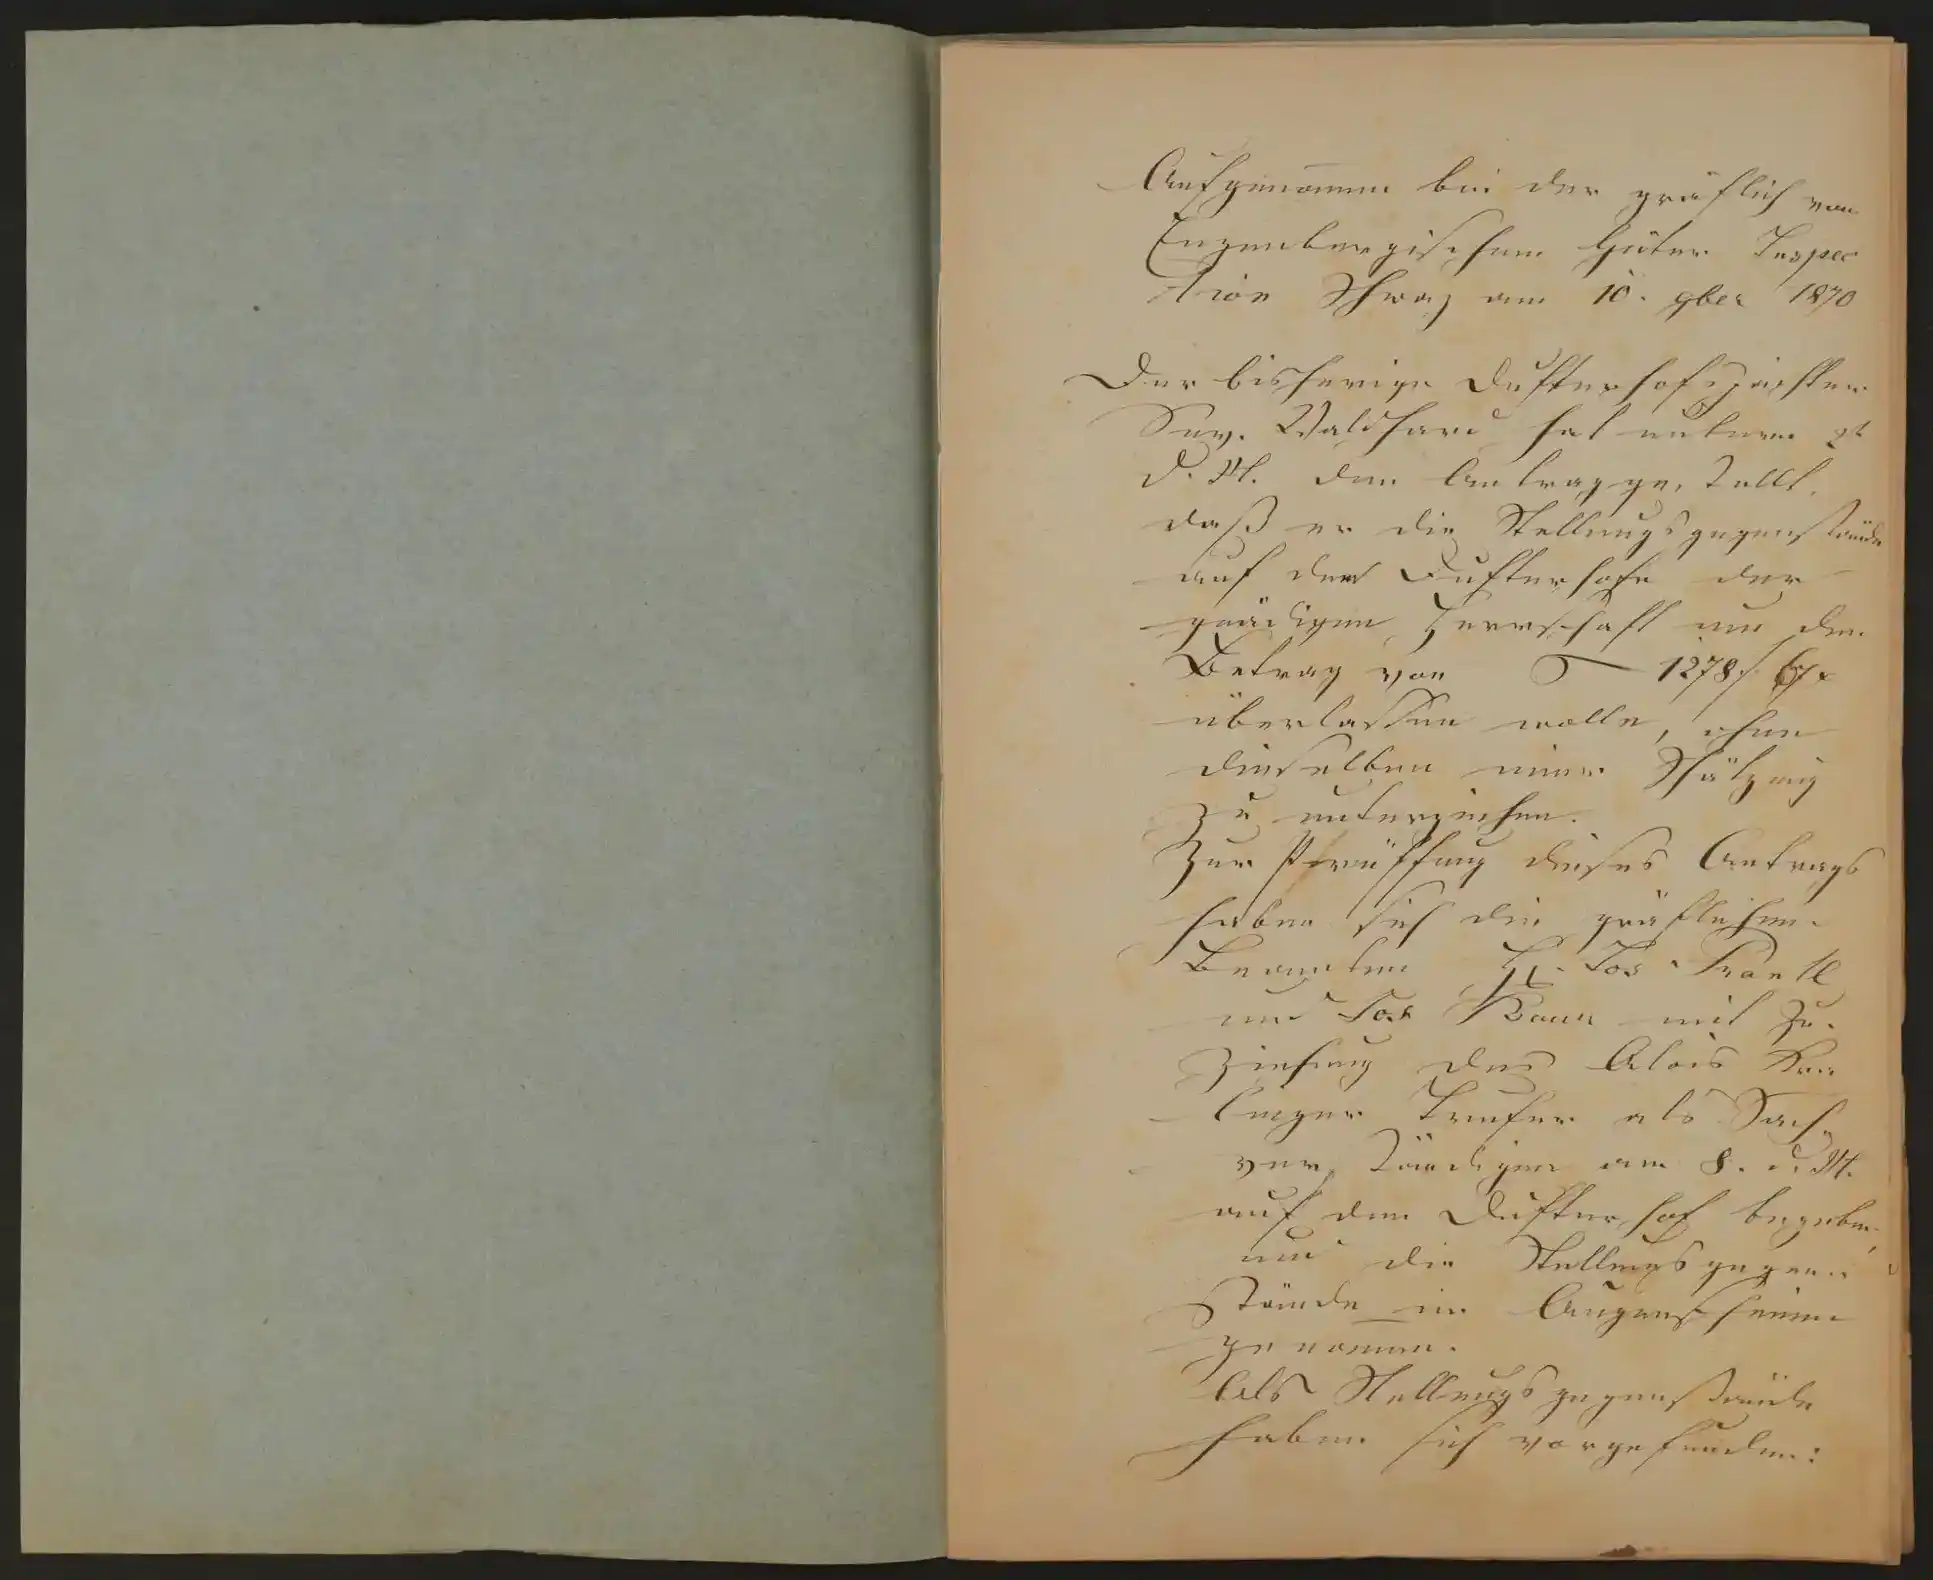 Aufgenom̅en bei der gräflich von
Enzenbergischen Güter Inspec
tion Schwaz am 10. 9ber 1870
Der bisherige Dufterhofspächter
Sev. Waldhard hat unterm
d. M. den Antrag gestellt,
daß er die Stellungsgegenstände
auf dem Dufterhofe der
gnädigen Herrschaft um den
Betrag von 1278 f 67 x
überlassen wolle, ohne
dieselben einer Schätzung
zu unterziehen.
Zur Prüffung dieses Antrags
haben sich die gräflichen
Beamten H. Jos. Prantl
und Jos Baur mit Zu-
ziehung des Alois
linger als Sach-
verständigen am 8. d. M.
auf den Dufterhof begeben,
und die Stellungsgegen-
stände in Augenschein
genom̅en.
Als Stellungsgegenstände
haben sich vorgefunden: